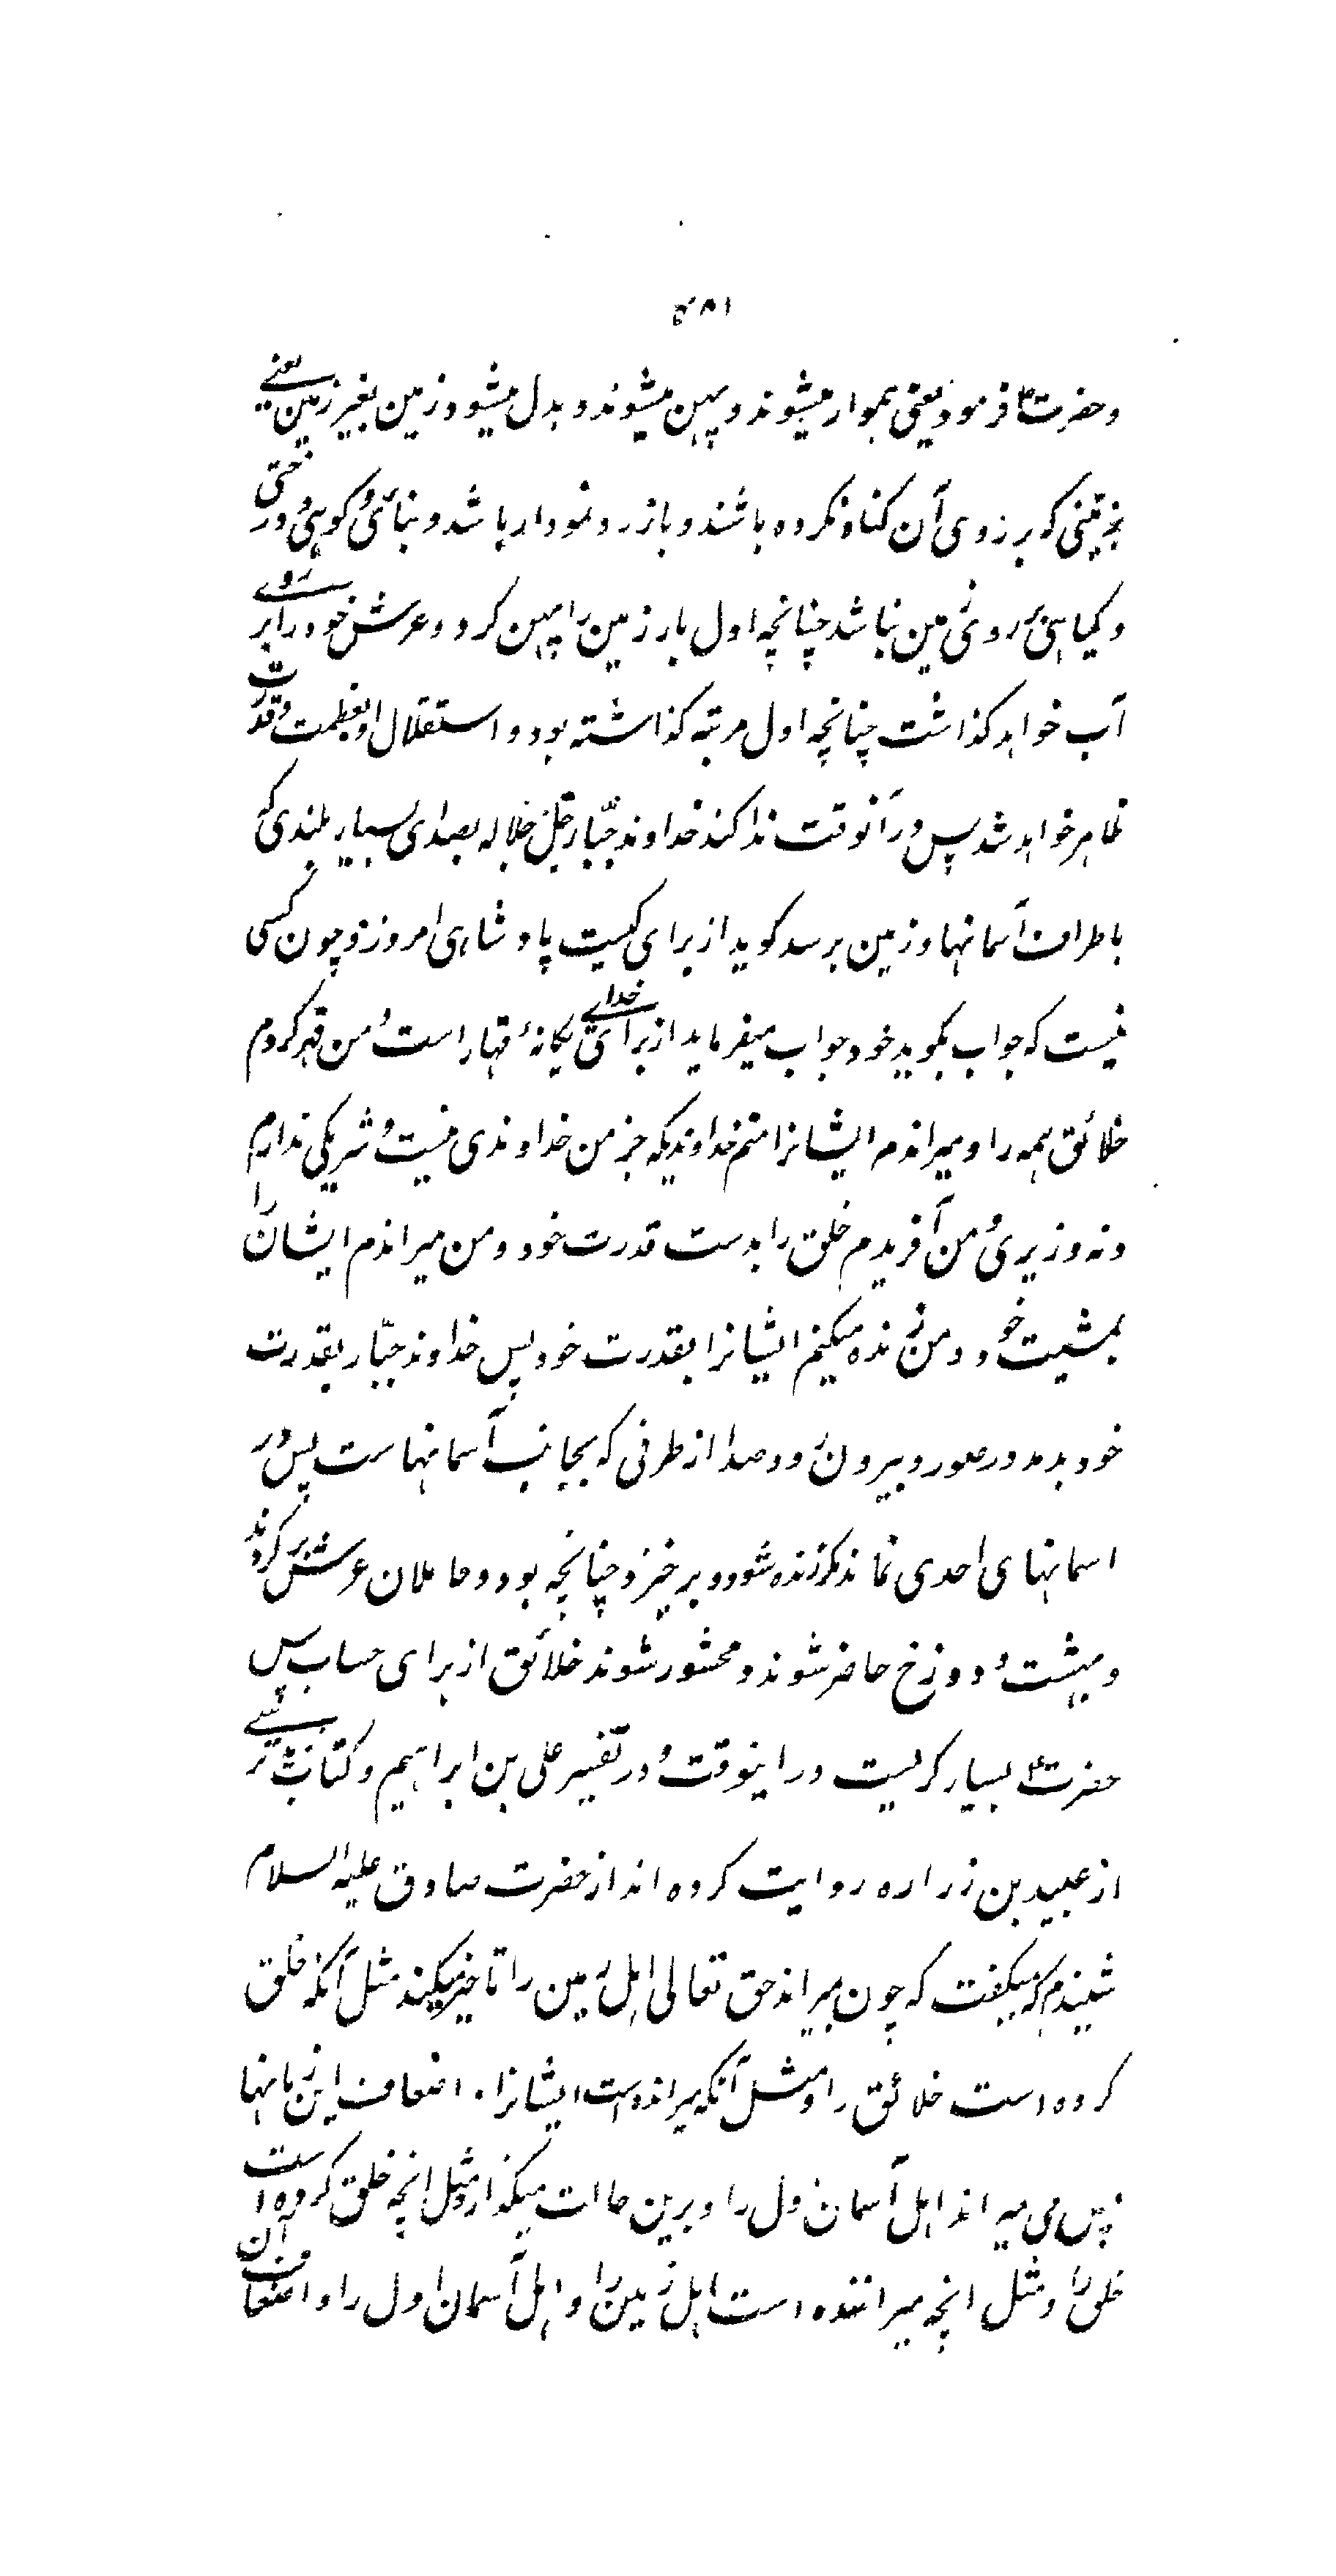 ۴۸۱
و حضرت؏ فرمود یعنی هموار میشوند و پهن میشوند و بدل میشود زمین بغیر زمین یعنے
بزمینی که بر روی آن کناه نکرده باشند و بارز و نمودار باشد و بنائی و کوهی و درختی
و کیاهی بر روی زمین نباشد چنانچه اول بار زمین را پهن کرد و عرش خود را بر روے
آب خواهد کذاشت چنانچه اول مرتبه کذاشته بود و استقلال او بعظمت و قدرت
ظاهر خواهد شد پس در آنوقت ندا کند خداوند جبّار جلّ جلاله بصدای بسیار بلندی که
باطراف آسمانها و زمین برسد کوید از برای کیست پادشاهی امروز و چون کسی
نیست که جواب بکوید خود جواب میفرماید از برای خدای یکانهٔ قهار است و من قهر کردم
خلائق همه را و میراندم ایشانرا منم خداوندیکه جز من خداوندی نیست و شریکی ندارم
و نه وزیری و من آفریدم خلق را بدست قدرت خود و من میراندم ایشان را
بمشیت خود و من زنده میکنم ایشانرا بقدرت خود پس خداوند جبّار بقدرت
خود بدمد در صور و بیرون رود صدا از طرفی که بجانب آسمانهاست پس در
اسمانهای احدی نماند مکر زنده شود و برخیزد چنانچه بود و حاملان عرش بر کردند
و بهشت و دوزخ حاضر شوند و محشور شوند خلائق از برای حساب پس
حضرت؏ بسیار کریست در اینوقت و در تفسیر علی بن ابراهیم و کتاب نرسی
از عبید بن زراره روایت کرده اند از حضرت صادق علیه السلام
شنیدم که میکفت که چون میراند حق تعالی اهل زمین را تاخیر میکند مثل آنکه خلق
کرده است خلائق را و مثل آنکه میرانده است ایشانرا و اضعاف این زمانها
پس می میراند اهل آسمان اول را و برین حالت میکذارد مثل انچه خلق کرده است
خلق را و مثل انچه میرانده است اهل زمین را و اهل آسمان اول را و اضعاف آن